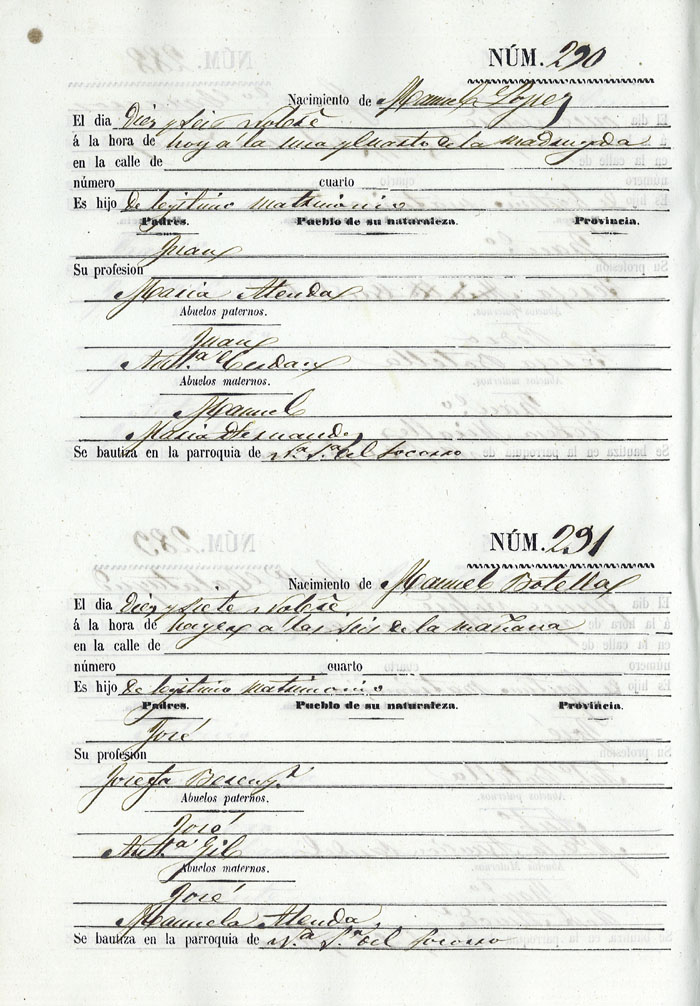 NÚM. 290
Nacimiento de Manuel Lopez
El dia Diez y seis
á la hora de hoy á la una y cuarto de la madrugada
en la calle de
número cuarto
Es hijo de legitimo matrimonio
Padres. Pueblo de su naturaleza. Provincia.
Juan
Su profesion
Maria Alenda
Abuelos paternos.
Juan
Antª Cerdan
Abuelos maternos.
Manuel
Maria Hernandez
Se bautiza en la parroquia de Nª Sª del Socorro
NÚM. 291
Nacimiento de Manuel Botella
El dia Diez y siete
á la hora de hayer a las seis de la mañana
en la calle de
número cuarto
Es hijo de legitimo matrimonio
Padres. Pueblo de su naturaleza. Provincia.
José
Su profesión
Josefa
Abuelos paternos.
José
Antª Gil
Abuelos maternos.
José
Manuela Alenda
Se bautiza en la parroquia de Nª Sª del Socorro